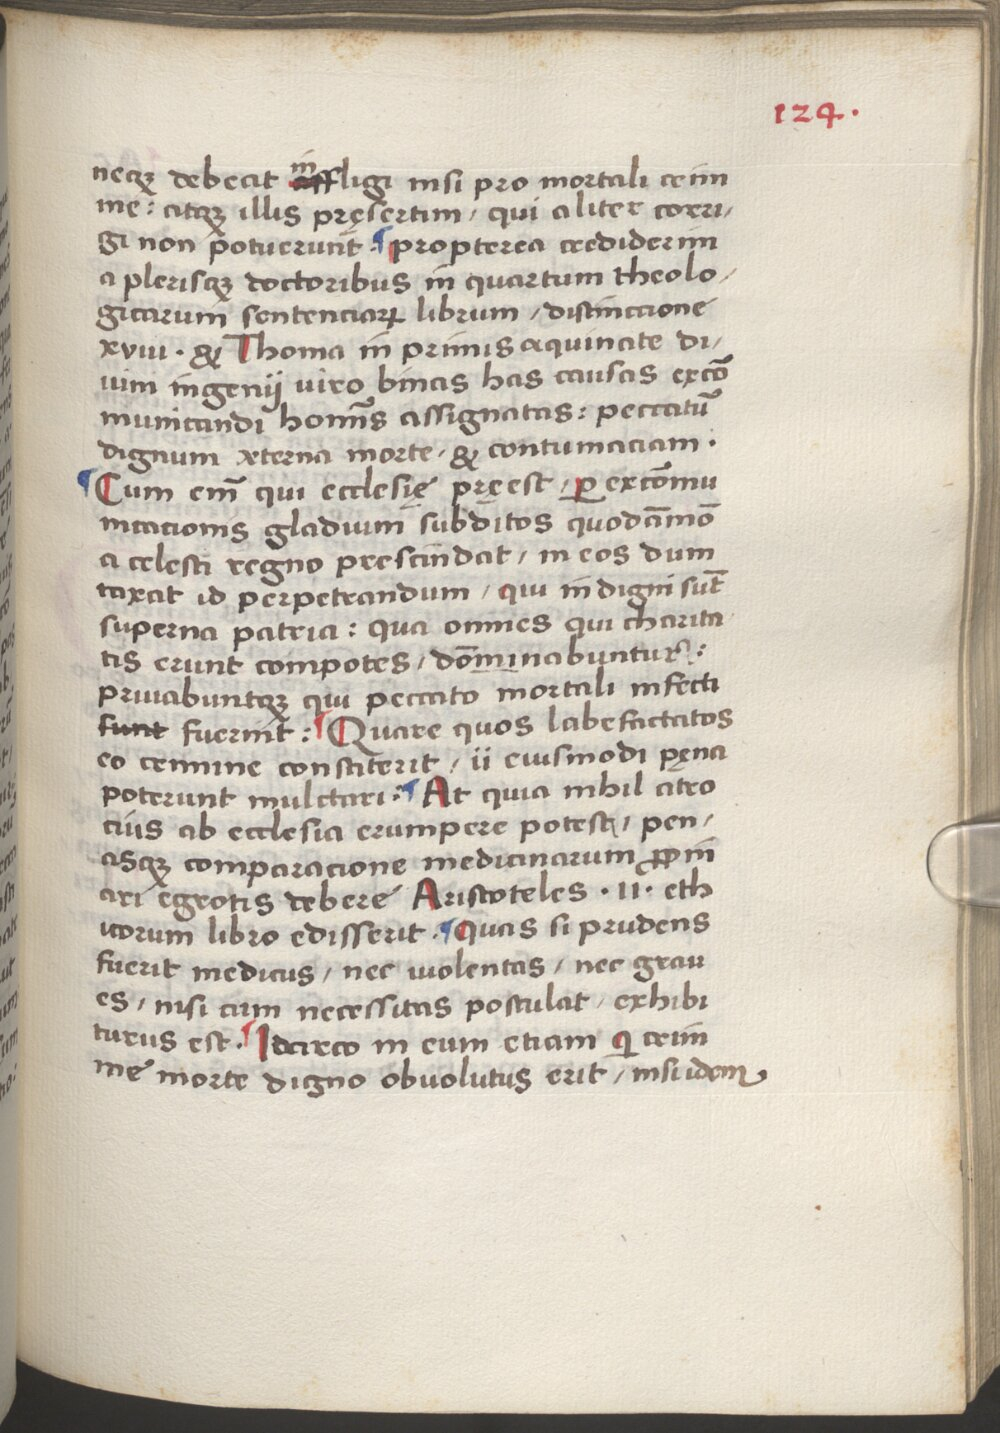 124.
neqꝫ debeat in affligi nisi pro mortali crim
me: atqꝫ illis pręsertim / qui aliter corri/
gi non potuerunt. ¶ propterea crediderim
a plerisqꝫ doctoribus in quartum theolo/
gicarum sentenciaꝝ librum / distinctione
xviii. & Thoma in primis aquinate di/
uini ingenij uiro binas has causas excō
municandi homīs assignatas: peccatū
dignum æterna morte. & contumaciam.
¶ Cum em̄ qui ecclesię pręest / ꝑ excōmu
nicacionis gladium subditos quodāmō
a celesti regno prescindat / in eos dum
taxat id perpetrandum / qui indigni sūt
superna patria: qua omnes qui charita
tis erunt compotes / dōminabuntur:
priuabuntqꝫ qui peccato mortali infecti
sunt fuerint: ¶ Quare quos labefactatos
eo crimine constiterit / ii eiusmodi pęna
poterunt mulctari: ¶ At quia nihil atro
cius ab ecclesia erumpere potest / pen/
asqꝫ comparacione medicinarum ꝓpin
ari egrotis debere Aristoteles . II . eth
icorum libro edisserit. ¶ Quas si prudens
fuerit medicus / nec uiolentas / nec grau
es / nisi cum necessitas postulat / exhibi
turus est. ¶ Idcirco in eum etiam qͥ crim
me morte digno obuolutus erit / nisi idem